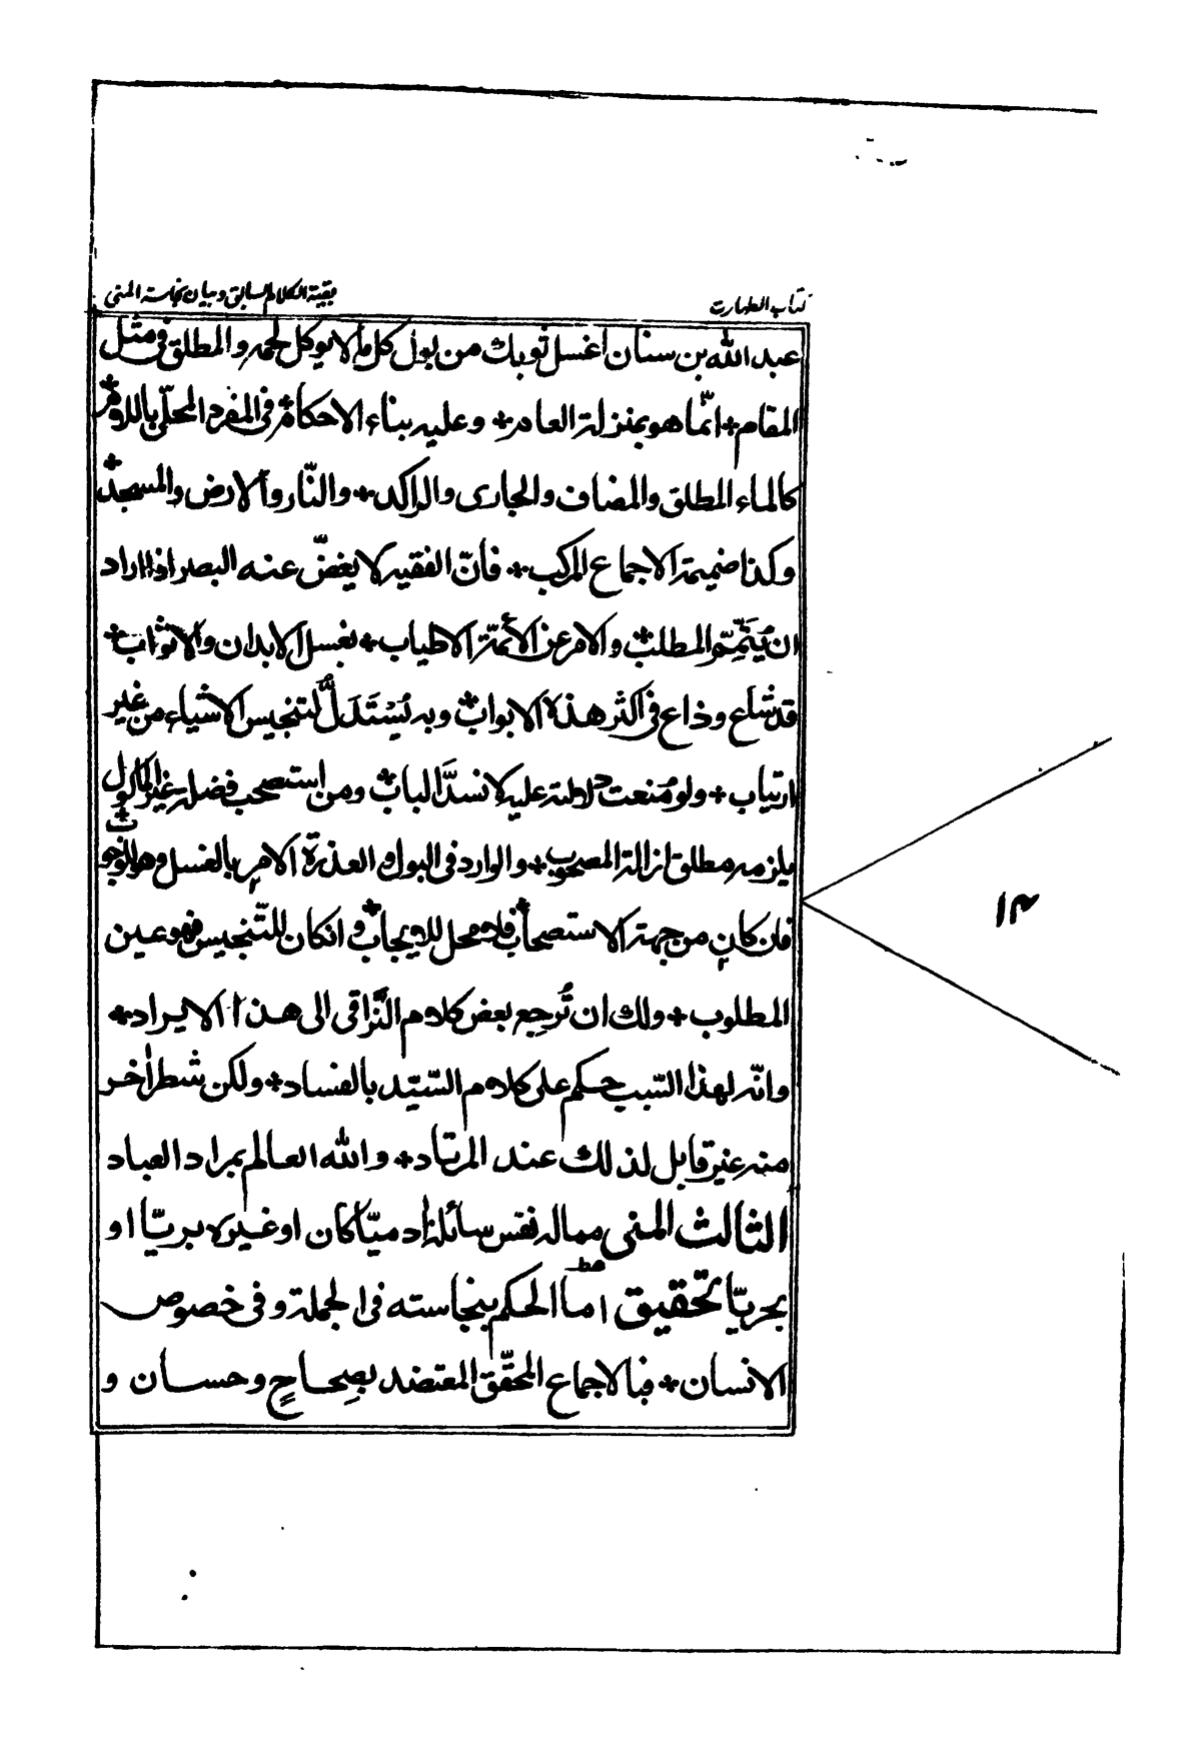 كتاب الطهارت
بقية الكلام السابق وبيان نجاسة المنى
عبد الله بن سنان اغسل ثوبك من بول كل ما لا يوكل لحمه والمطلق فى مثل
المقام + انّما هو بمنزلة العام + وعليه بناء الاحكام + فى المفرد المحلّى باللام +
كالماء المطلق والمضاف والجارى والراكد + والنّار والارض والمسجد +
وكذا ضميمة الاجماع المركب + فانّ الفقيه لا يغضّ عنه البصر اذا اراد
ان يُتَمِّم المطلب + والامر عن الأئمّة الاطياب + بغسل الابدان والاثواب +
قد شاع وذاع فى اكثر هذه الابواب + وبه يُسْتَدَلُّ لتنجيس الاشياء من غير
ارتياب + ولو مُنعت دلالته عليه لانسدَّ الباب + ومن استصحب فضلة غير المأكول
يلزمه مطلق ازالة المصحوب + والوارد فى البول والعذرة الامر بالغسل وهو للوجوب +
فان كان من جهة الاستصحاب فلا محل للايجاب + وانكان للتّنجيس فهو عين
المطلوب + ولك ان تُرجع بعض كلام النَّراقى الى هذا الايراد +
وانّه لهذا السّبب حكم على كلام السّيّد بالفساد + ولكن شطر أخر
منه غير قابل لذلك عند المرتاد + والله العالم بمراد العباد
الثالث المنى مما له نفس سائلة أدميّا كان او غيره بريّا او
بحريّا تحقيق امّا الحكم بنجاسته فى الجملة وفى خصوص
الانسان + فبالاجماع المحقّق المعتضد بصِحاحٍ وحسان و
١٣